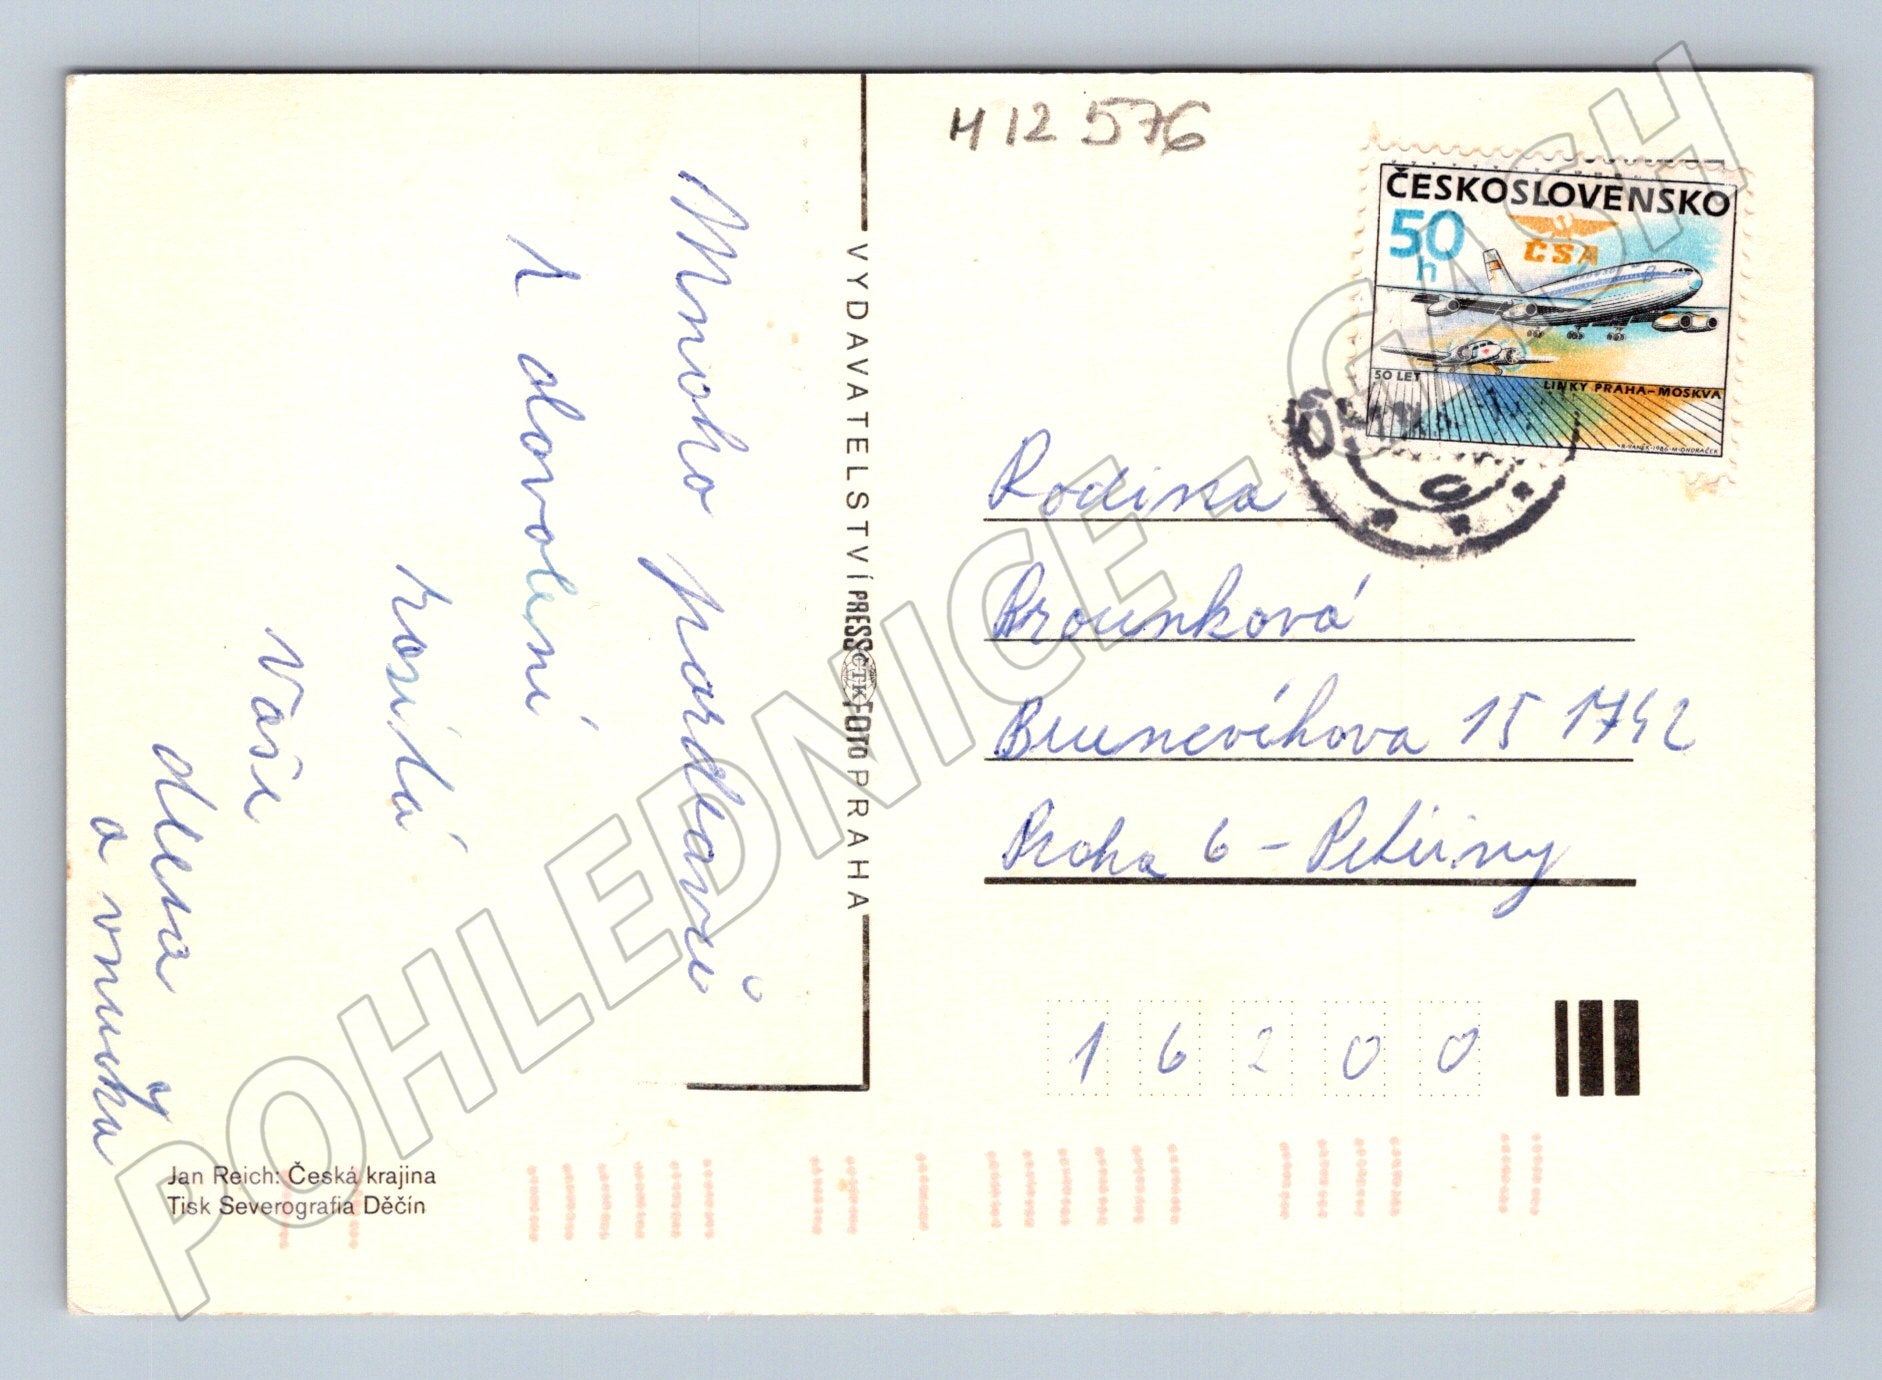 H 12 576
ČESKOSLOVENSKO
50 h
ČSA
50 LET
LINKY PRAHA-MOSKVA
R.VANĚK-1986-M.ONDRÁČEK
Mnoho pozdravů
z dovolené
posílá
Vaše
dcera
a vnučka
VYDAVATELSTVÍ PRESSFOTO PRAHA
ČTK
Rodina
Brounková
Bruncvíkova 15 1742
Praha 6 - Petřiny
16200
Jan Reich: Česká krajina
Tisk Severografia Děčín
POHLEDNICE - CASH